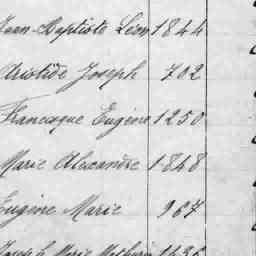 Jean-Baptiste Léon 1844
Aristide Joseph 702
Francisque Eugène 1250
Marie Alexandre 1848
Eugène Marie 967
Joseph Marie Mathurin 1636